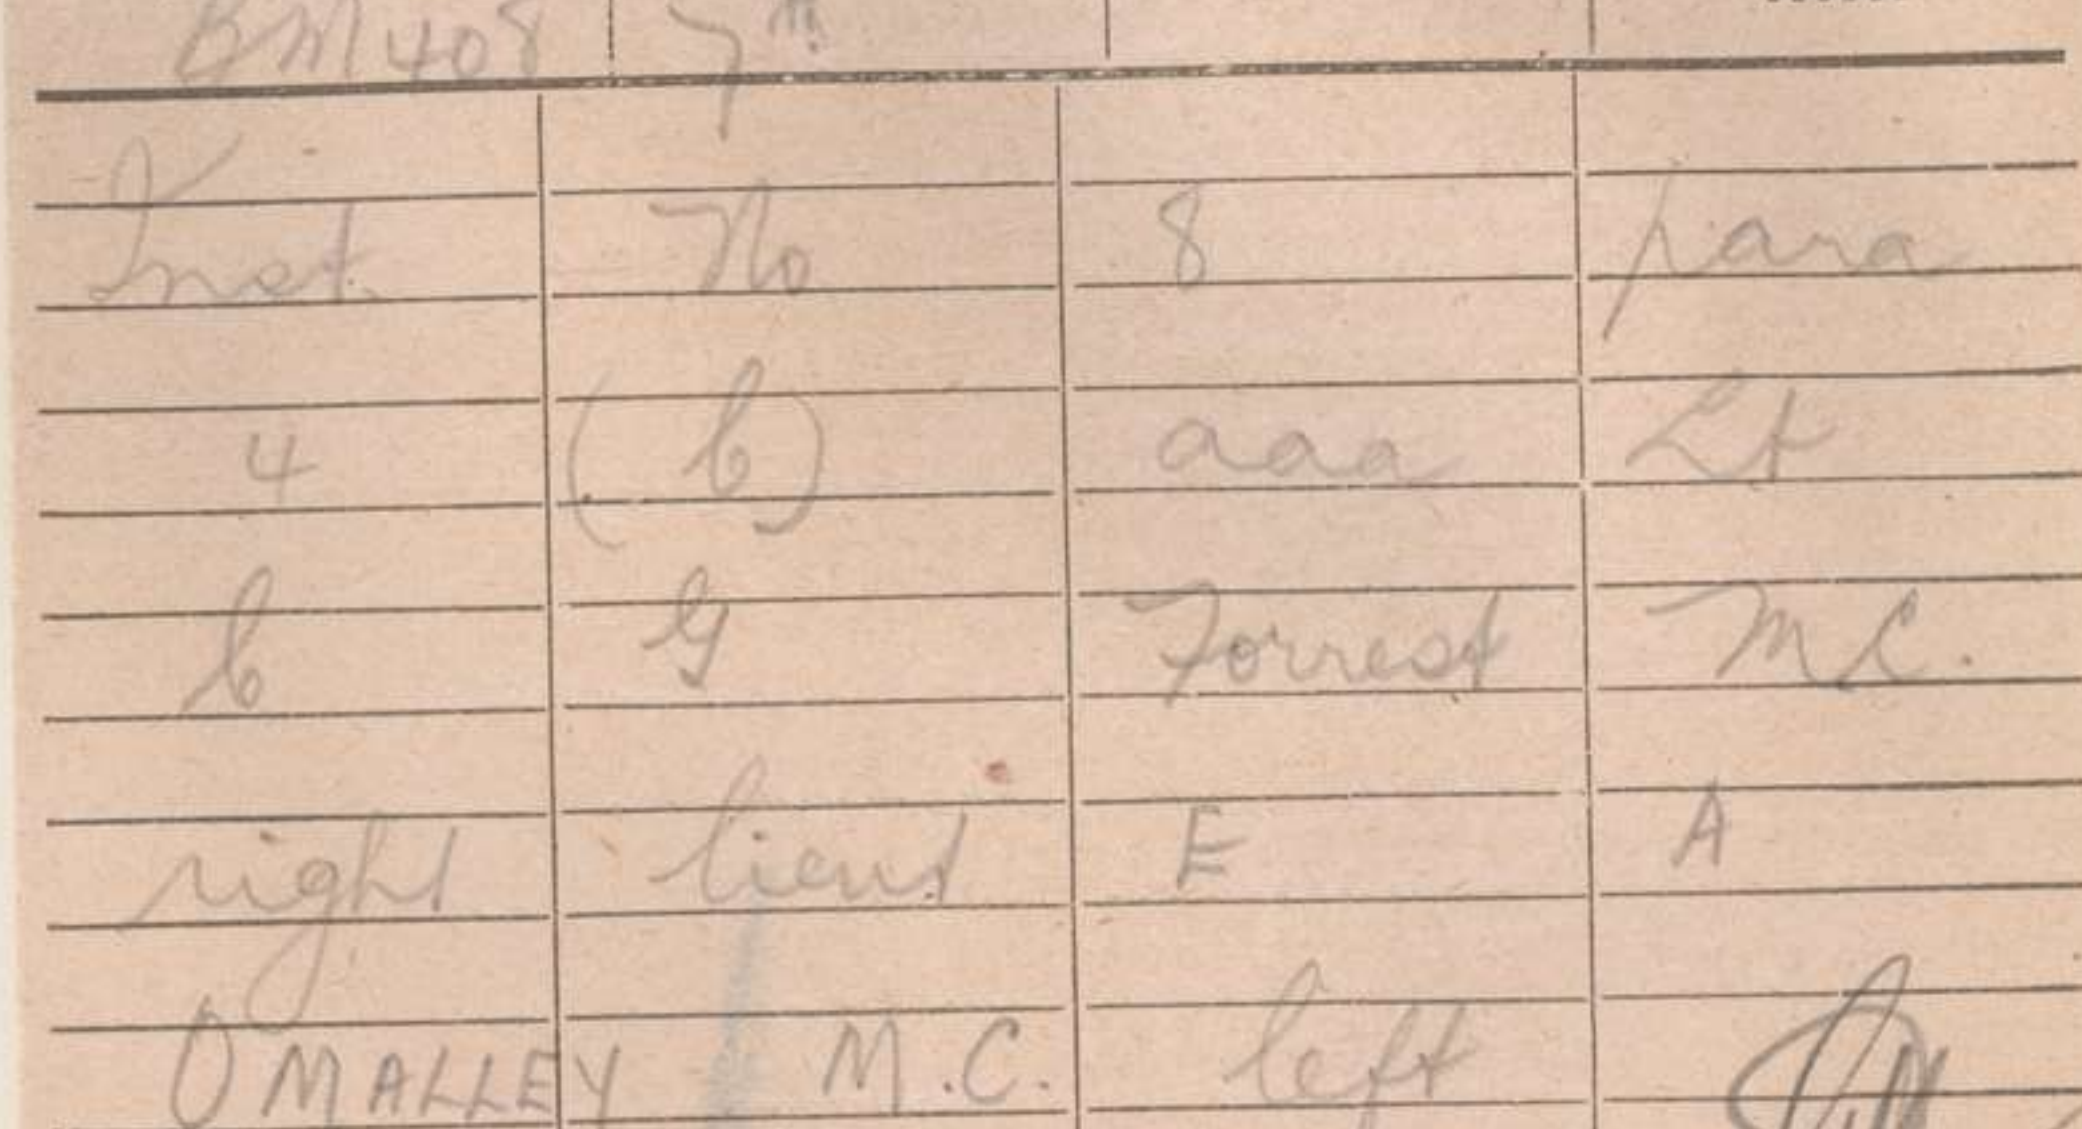 BM408 7th
Inst. No 8 para
4 (b) aaa Lt
C G Forrest MC.
right lieut E A
OMALLEY M.C. left